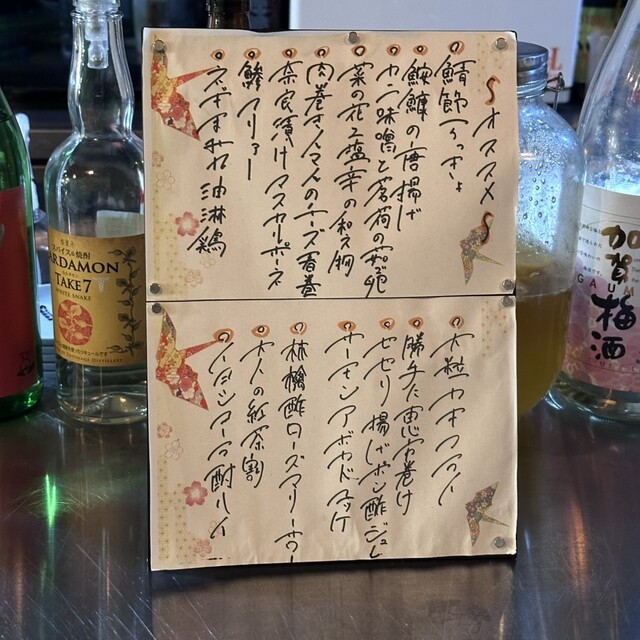 オススメ
鯖節らっきょ
鮟鱇の唐揚げ
カニ味噌と茗荷の
菜の花と塩辛の和え物
肉巻きんマんのチーズ春巻
奈良漬けマスカルポーネ
鯵フリャー
ネギまみれ油淋鶏
大粒カキフライ
勝手に恵方巻け
セセリ揚げポン酢ジュレ
サーモンアボカドユッケ
林檎酢ローズマリーサワー
大人の紅茶割
酎ハイ
香薫る
スパイス焼酎
CARDAMON
TAKE7
WHITE SNAKE
加賀梅酒
GA